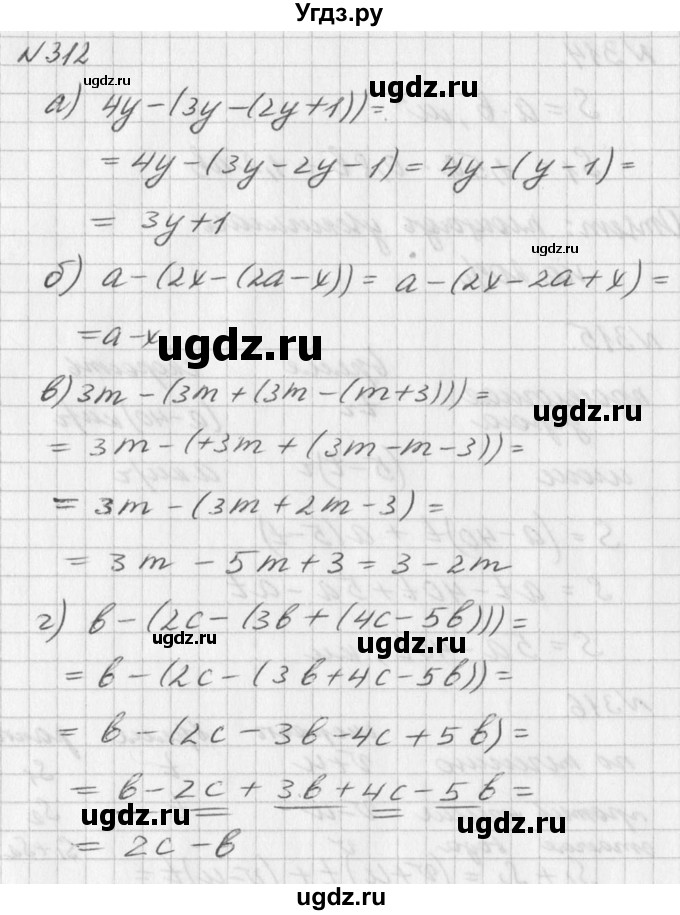 Угдз.ру
N 312
ugdz.ru
ugdz.ru
а) 4y-(3y-(2y+1))=
= 4y-(3y-2y-1)= 4y-(y-1)=
= 3y+1
ugdz.ru
б) a-(2x-(2a-x))= a-(2x-2a+x)=
=a-x
ugdz.ru
в) 3m-(3m+(3m-(m+3)))=
ugdz.ru
= 3m-(+3m+(3m-m-3))=
= 3m-(3m+2m-3)=
= 3m-5m+3=3-2m
г) b-(2c-(3b+(4c-5b)))=
ugdz.ru
= b-(2c-(3b+4c-5b))=
= b-(2c-3b-4c+5b)=
= b-2c+3b+4c-5b=
ugdz.ru
ugdz.ru
= 2c-b
ugdz.ru
ugdz.ru